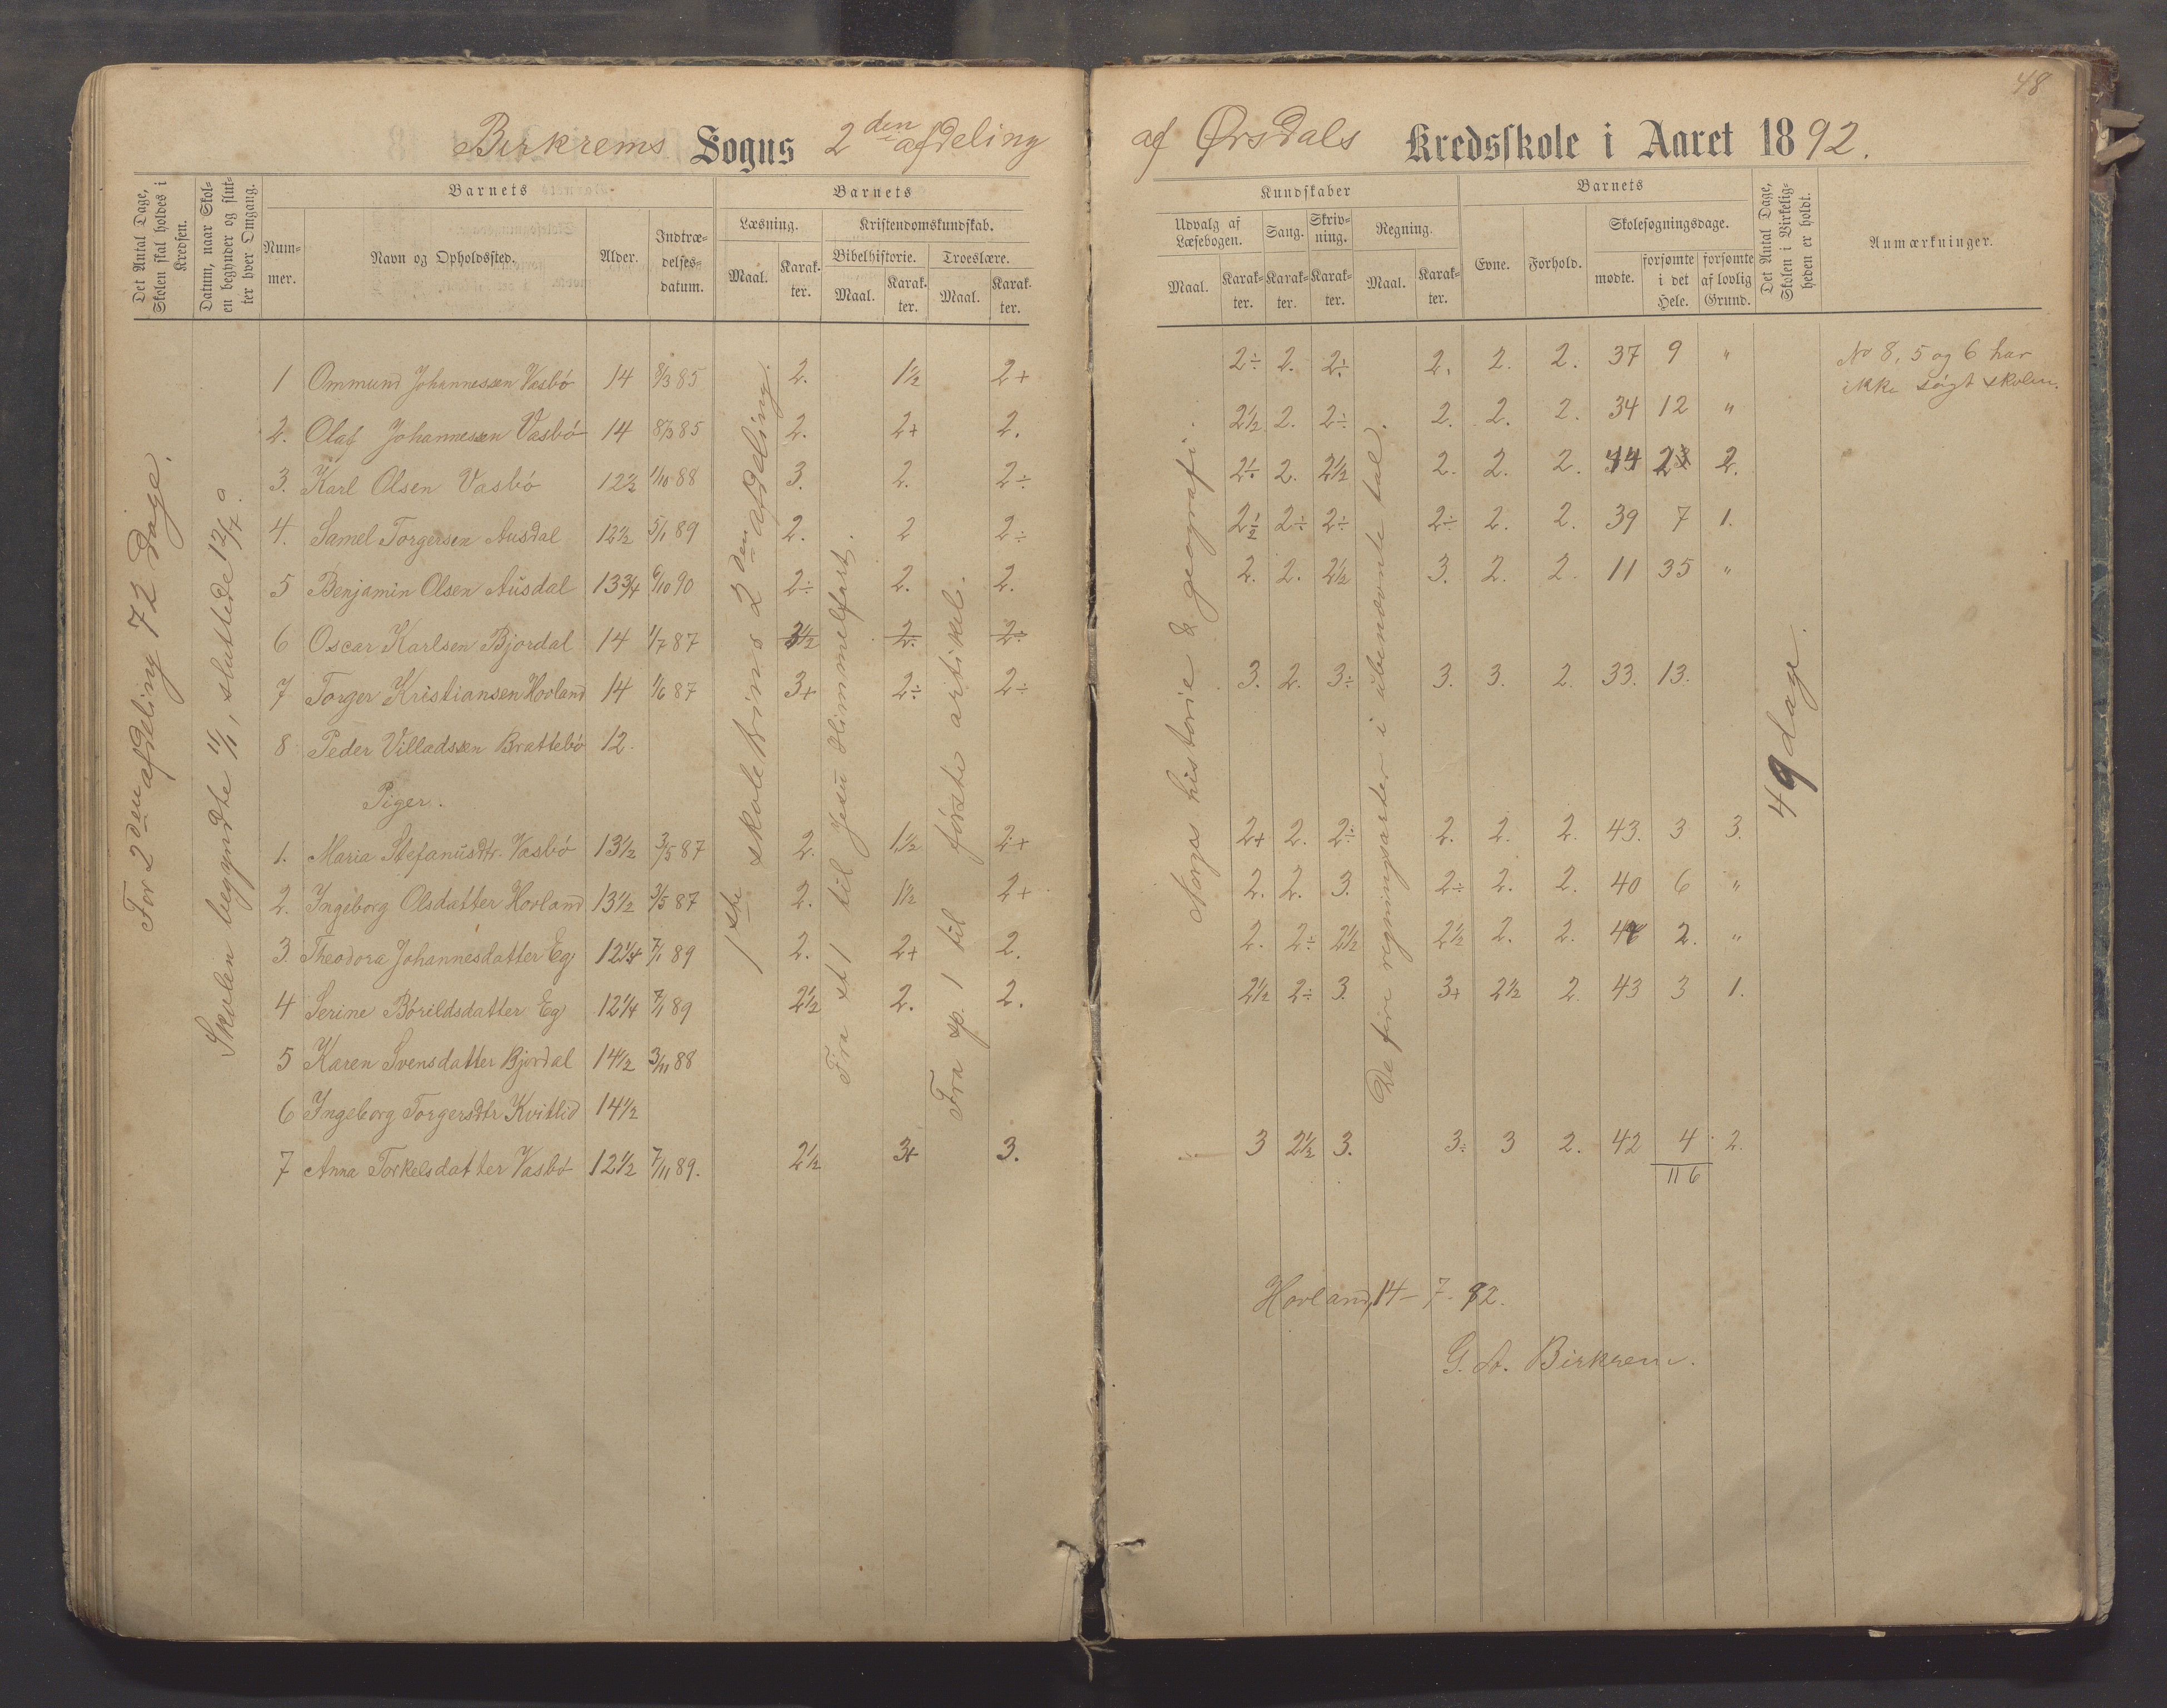 48
Birkrems Sogns 2den afdeling
af Ørsdals Kredsskole i Aaret 1892.
Det Antal Dage, Skolen skal holdes i Kredsen.
Datum, naar Skolen begynder og slutter hver Omgang.
Barnets
Nummer.
Navn og Opholdssted.
Alder.
Indtrædelsesdatum.
Barnets
Læsning.
Maal.
Karakter.
Kristendomskundskab.
Bibelhistorie.
Maal.
Karakter.
Troeslære.
Maal.
Karakter.
Kundskaber
Udvalg af Læsebogen.
Maal.
Karakter.
Sang.
Karakter.
Skrivning.
Karakter.
Regning.
Maal.
Karakter.
Barnets
Evne.
Forhold.
Skolesøgningsdage.
mødte.
forsømte i det Hele.
forsømte af lovlig Grund.
Det Antal Dage, Skolen i Virkeligheden er holdt.
Anmærkninger.
For 2den afdeling 72 dage.
Skolen begyndte 11/1, sluttede 12/7
1ste skoletrins 2den afdeling.
Fra st 1 til Jesu Himmelfart.
Fra sp. 1 til første artikel.
Norges historie & geografi.
De fire regningsarter i ubenævnte tal.
49 dage.
No 8, 5 og 6 har
ikke søgt skolen.
1 Ommund Johannessen Vasbö 14 8/3 85 2. 1½ 2+ 2÷ 2. 2÷ 2. 2. 2. 37 9 "
2. Olaf Johannessen Vasbö 14 8/3 85 2. 2+ 2. 2½ 2. 2÷ 2. 2. 2. 34 12 "
3. Karl Olsen Vasbö 12½ 1/10 88 3. 2. 2÷ 2÷ 2. 2½ 2. 2. 2. 44 2 2.
4. Samel Torgersen Ausdal 12½ 5/1 89 2. 2 2÷ 2½ 2÷ 2÷ 2÷ 2. 2. 39 7 1.
5 Benjamin Olsen Ausdal 13¾ 6/10 90 2÷ 2. 2. 2. 2. 2½ 3. 2. 2. 11 35 "
6 Oscar Karlsen Bjordal 14 1/7 87 3½ 2. 2÷
7 Torger Kristiansen Hovland 14 1/6 87 3+ 2÷ 2÷ 3. 2. 3÷ 3. 3. 2. 33. 13.
8 Peder Villadssen Brattebö 12.
Piger.
1. Maria Stefanusdtr. Vasbö 13½ 3/5 87 2. 1½ 2+ 2+ 2. 2÷ 2. 2. 2. 43. 3 3.
2. Ingeborg Olsdatter Hovland 13½ 3/5 87 2. 1½ 2+ 2. 2. 3. 2÷ 2. 2. 40 6 "
3. Theodora Johannesdatter Eg 12¼ 7/1 89 2. 2+ 2. 2. 2÷ 2½ 2½ 2. 2. 44 2. "
4 Serine Börildsdatter Eg 12¼ 7/1 89 2½ 2. 2. 2½ 2÷ 3. 3+ 2½ 2. 43 3 1.
5 Karen Svensdatter Bjordal 14½ 3/11 88
6 Ingeborg Torgersdtr Kvitlid 14½
7 Anna Torkelsdatter Vasbö 12½ 7/11 89. 2½ 3+ 3. 3 2½ 3. 3÷ 3 2. 42 4 2.
116
Hovland, 14-7-92.
G. A. Birkrem.